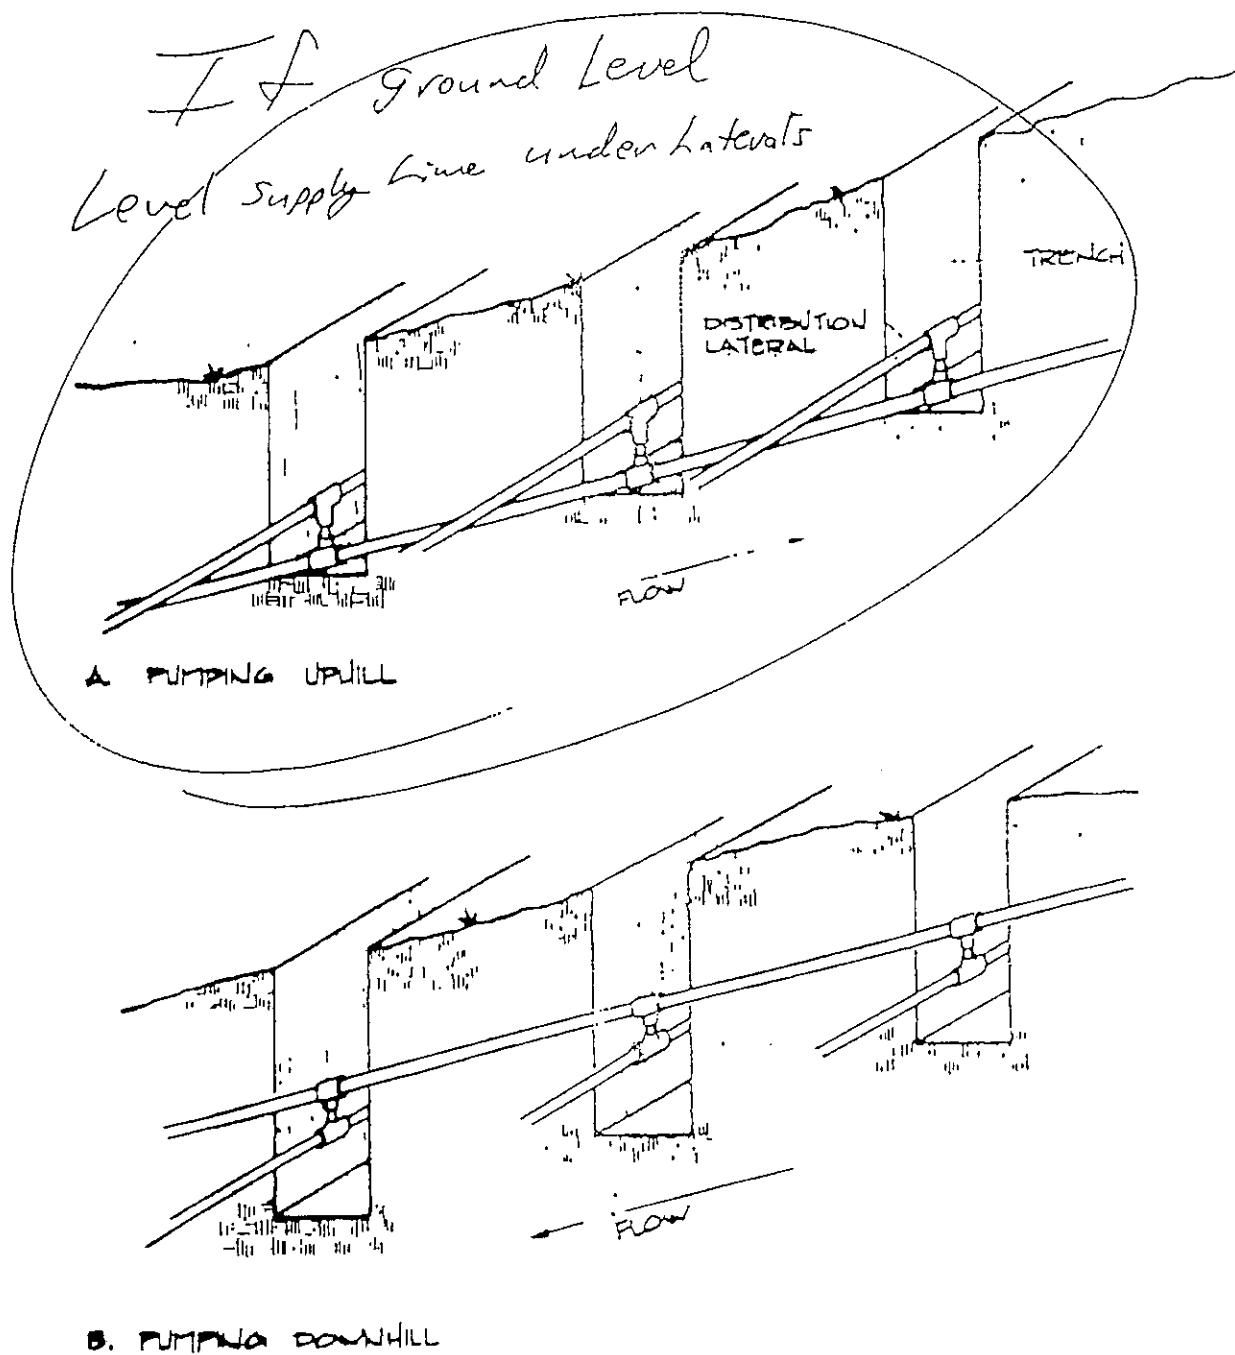 If ground Level
Level supply Line under Laterals
TRENCH
DISTRIBUTION
LATERAL
FLOW
A PUMPING UPHILL
FLOW
B. PUMPING DOWNHILL